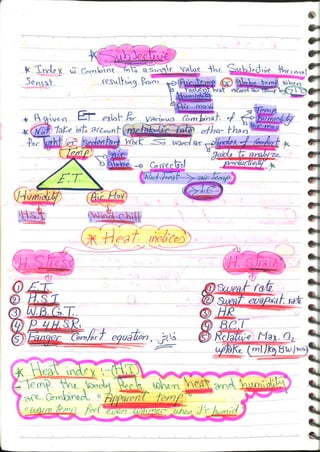 * Subjective
* Index is combine into a single value the Subjective thermal
Sensat. resulting from Air temp or Globe temp when
Humidity
Air mov.
* A given ET exist for various Combinat. of Temp
humidity
air mov.
* Not take into account metabolic rate other than
for light or Sedentary work So used as index of comfort
guide to analyze
productivity
Temp
air
Globe → Corrected
E.T
Humidity
Air Mov
H.S.I
Wind chill
* Heat indices
H. Stress
① E.T.
② H.S.I
③ W.B.G.T.
④ P4H.S.R.
⑤ Fanger Comfort equation.
H. Strain
① Sweat rate
② Sweat evaporat. rate
③ HR
④ B.C.T
⑤ Relative Max. O2
uptake (ml/kgBw/min)
* Heat index :- (H.I)
- Temp the body feels when heat and humidity
are combined. "Apparent temp"
warm temp feel even warmer when it's humid